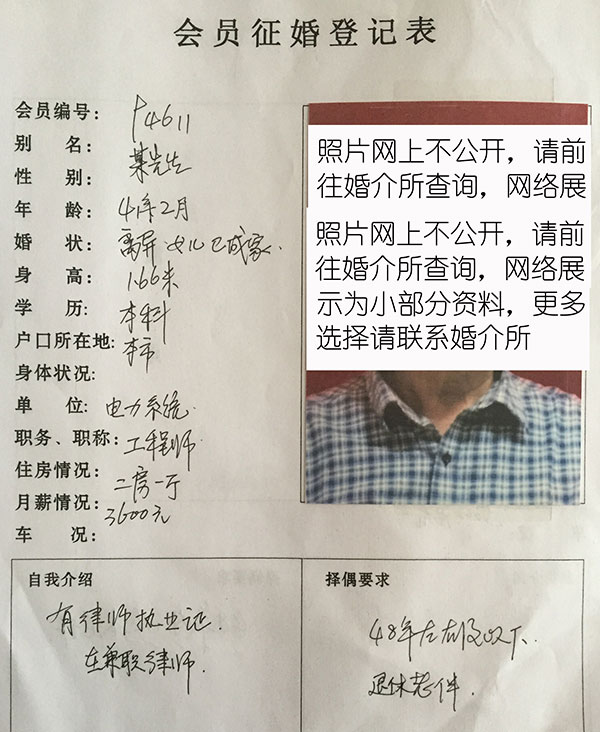 会员征婚登记表
会员编号: 14611
别 名: 某先生
性 别:
年 龄: 41年2月
婚 状: 离异 女儿已成家.
身 高: 1.66米
学 历: 本科
户口所在地: 本市
身体状况:
单 位: 电力系统
职务、职称: 工程师
住房情况: 二房一厅
月薪情况: 3600元
车 况:
照片网上不公开，请前
往婚介所查询，网络展
照片网上不公开，请前
往婚介所查询，网络展
示为小部分资料，更多
选择请联系婚介所
自我介绍
有律师执业证.
在兼职律师.
择偶要求
48年左右及以下.
退休 条件.